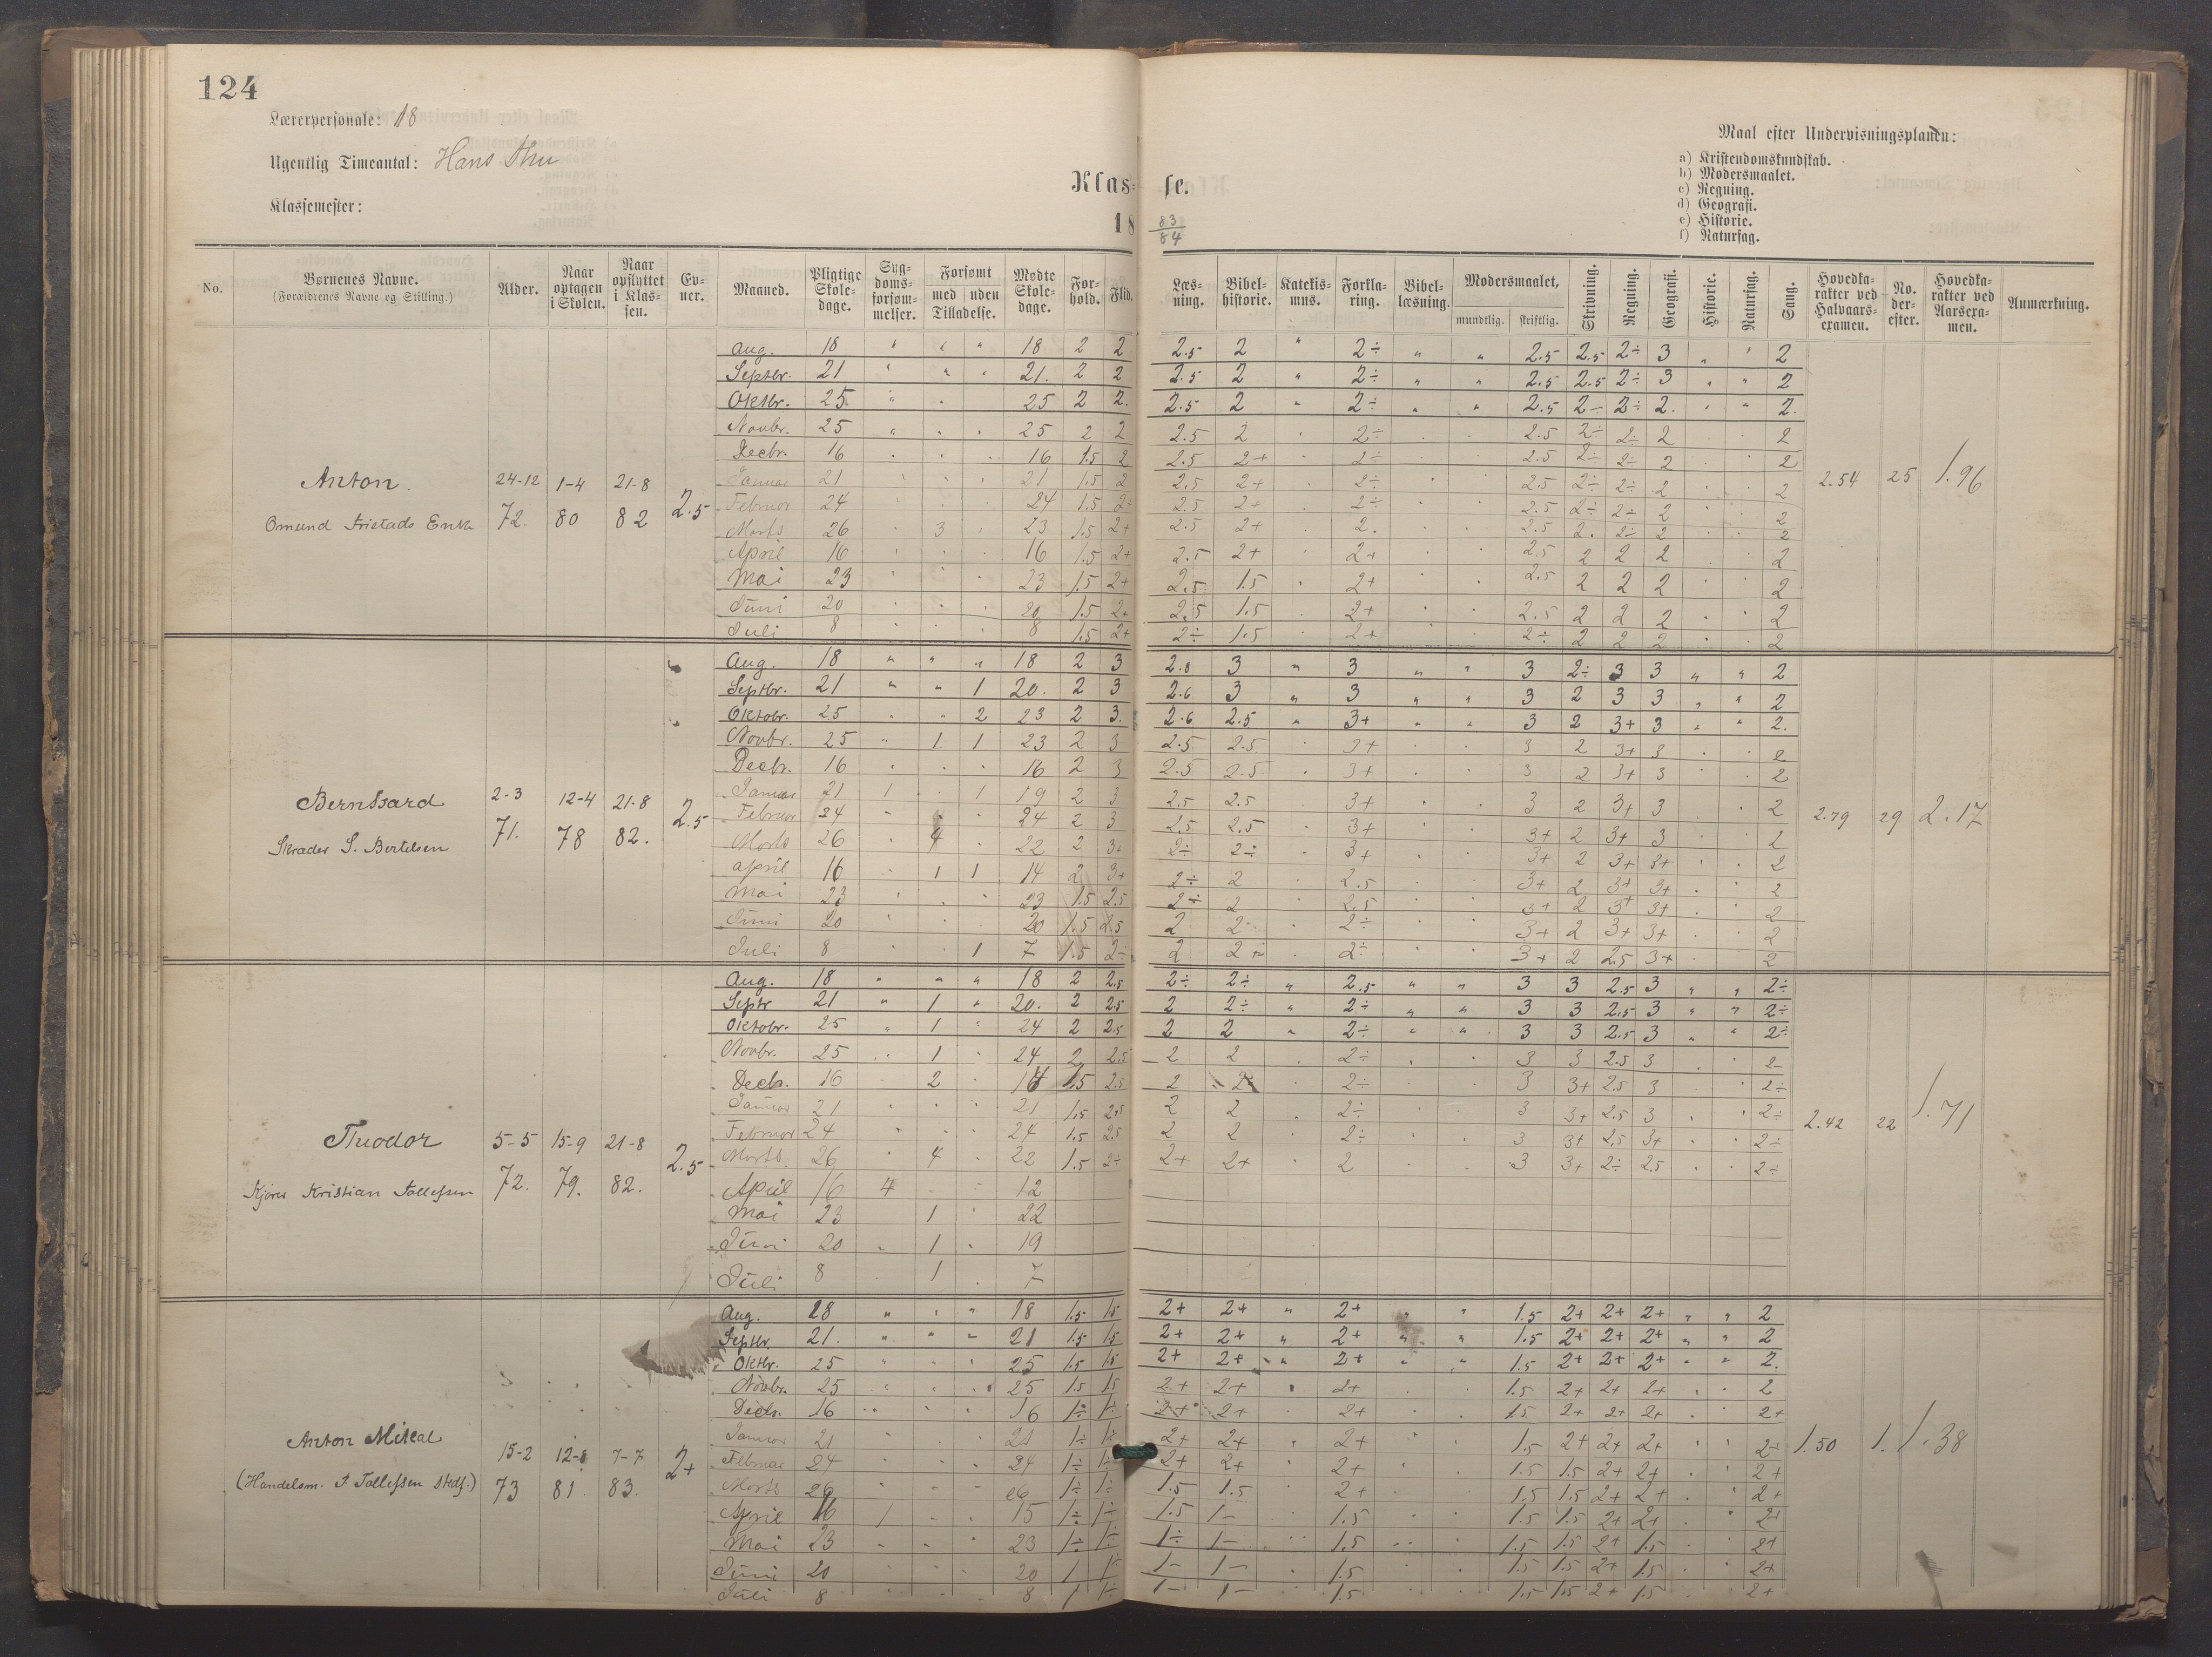 124
Lærerpersonale: 18
Ugentlig Timeantal: Hans Thu
Klassemester:
Klasse.
18 83/84
Maal efter Undervisningsplanen:
a) Kristendomskundskab.
b) Modersmaalet.
c) Regning.
d) Geografi.
e) Historie.
f) Naturfag.
No. Børnenes Navne. (Forældrenes Navne og Stilling.) Alder. Naar optagen i Skolen. Naar opflyttet i Klassen. Evner. Maaned. Pligtige Skoledage. Sygdomsforsømmelser. Forsømt med uden Tilladelse. Mødte Skoledage. Forhold. Flid. Læsning. Bibelhistorie. Katekismus. Forklaring. Bibellæsning. Modersmaalet, mundtlig. skriftlig. Skrivning. Regning. Geografi. Historie. Naturfag. Sang. Hovedkarakter ved Halvaarsexamen. No. derefter. Hovedkarakter ved Aarsexamen. Anmærkning.
Aug. 18 " " " 18 2 2 2.5 2 " 2÷ " " 2.5 2.5 2÷ 3 " " 2
Septbr. 21 " " " 21. 2 2 2.5 2 " 2÷ " " 2.5 2.5 2÷ 3 " " 2
Oktbr. 25 " " 25 2 2. 2.5 2 " 2÷ " " 2.5 2- 2÷ 2. " " 2.
Novbr. 25 " " " 25 2 2 2.5 2 " 2÷ 2.5 2÷ 2÷ 2 2
Decbr. 16 16 1.5 2 2.5 2+ 2÷ 2.5 2÷ 2÷ 2 2
Januar 21 21 1.5 2 2.5 2+ 2÷ 2.5 2÷ 2÷ 2 2
Februar 24 24 1.5 2+ 2.5 2+ 2÷ 2.5 2÷ 2÷ 2 2
Marts 26 3 23 1.5 2+ 2.5 2+ 2. 2.5 2. 2÷ 2 2
April 16 16 1.5 2+ 2.5 2+ 2+ 2.5 2 2 2 2
Mai 23 23 1.5 2+ 2.5 1.5 2+ 2.5 2 2 2 2
Juni 20 20 1.5 2+ 2.5 1.5 2+ 2.5 2 2 2 2
Juli 8 8 1.5 2+ 2÷ 1.5 2+ 2÷ 2 2 2 2
Anton. 24-12 1-4 21-8 2.54 25 1.96
Omund Tristads Enke 72. 80 82 2.5
Aug. 18 " " " 18 2 3 2.8 3 " 3 " " 3 2÷ 3 3 " " 2
Septbr. 21 " " 1 20. 2 3 2.6 3 " 3 " " 3 2 3 3 " " 2
Oktobr. 25 " " 2 23 2 3. 2.6 2.5 " 3+ " " 3 2 3+ 3 " " 2.
Novbr. 25 " 1 1 23 2 3 2.5 2.5 3+ 3 2 3+ 3 2
Decbr. 16 16 2 3 2.5 2.5 3+ 3 2 3+ 3 2
Januar 21 1 1 19 2 3 2.5 2.5 3+ 3 2 3+ 3 2
Februar 24 24 2 3 2.5 2.5 3+ 3+ 2 3+ 3 2
Marts 26 4 22 2 3+ 2÷ 2÷ 3+ 3+ 2 3+ 3+ 2
april 16 1 1 14 2 3+ 2÷ 2 2.5 3+ 2 3+ 3+ 2
Mai 23 23 1.5 2.5 2÷ 2 2.5 3+ 2 3+ 3+ 2
Juni 20 20 1.5 2.5 2 2 2÷ 3+ 2 3+ 3+ 2
Juli 8 1 7 1.5 2÷ 2 2+ 2÷ 3+ 2 2.5 3+ 2
Bernhard 2-3 12-4 21-8 2.79 29 2.17
Skræder S. Bertelsen 71. 78 82. 2.5
Aug. 18 " " " 18 2 2.5 2÷ 2÷ " 2.5 " " 3 3 2.5 3 " " 2÷
Septr 21 " 1 " 20. 2 2.5 2 2÷ " 2÷ " " 3 3 2.5 3 " " 2÷
Oktobr. 25 " 1 " 24 2 2.5 2 2 " 2÷ " " 3 3 2.5 3 " " 2÷
Novbr. 25 1 24 2 2.5 2 2 2÷ 3 3 2.5 3 2-
Decbr. 16 2 14 1.5 2.5 2 2 2÷ 3 3+ 2.5 3 2÷
Januar 21 21 1.5 2.5 2 2 2÷ 3 3+ 2.5 3 2÷
Februar 24 24 1.5 2.5 2 2 2÷ 3 3+ 2.5 3+ 2÷
Marts. 26 4 22 1.5 2÷ 2+ 2+ 2 3 3+ 2÷ 2.5 2÷
April 16 4 12
Mai 23 1 22
Juni 20 1 19
Juli 8 1 7
Theodor 5-5 15-9 21-8 2.42 22 1.71
Kristian Tollefsen 72. 79. 82. 2.5
Aug. 18 " " " 18 1.5 1.5 2+ 2+ " 2+ " " 1.5 2+ 2+ 2+ " " 2
Septbr. 21. " " " 21 1.5 1.5 2+ 2+ " 2+ " " 1.5 2+ 2+ 2+ " " 2
Oktbr. 25 " " " 25 1.5 1.5 2+ 2+ " 2+ " " 1.5 2+ 2+ 2+ " " 2.
Novbr. 25 25 1.5 1.5 2+ 2+ 2+ 1.5 2+ 2+ 2+ 2
Decbr. 16 16 1÷ 1÷ 2+ 2+ 2+ 1.5 2+ 2+ 2+ 2+
Januar 21 21 1÷ 1÷ 2+ 2+ 2+ 1.5 2+ 2+ 2+ 2+
Februar 24 24 1÷ 1÷ 2+ 2+ 2+ 1.5 1.5 2+ 2+ 2+
Marts 26 26 1÷ 1÷ 1.5 1.5 2+ 1.5 1.5 2+ 2+ 2+
April 16 1 15 1÷ 1÷ 1.5 1- 1.5 1.5 1.5 2+ 2+ 2+
Mai 23 23 1÷ 1÷ 1÷ 1- 1.5 1.5 1.5 2+ 1.5 2+
Juni 20 20 1 1÷ 1- 1- 1.5 1.5 1.5 2+ 1.5 2+
Juli 8 8 1 1- 1- 1- 1.5 1.5 1.5 2+ 1.5 2+
Anton Mikal 15-2 7-7 1.50 1. 1.38
(Handelsm. T Tollefsen Stedf.) 73 81. 83. 2+